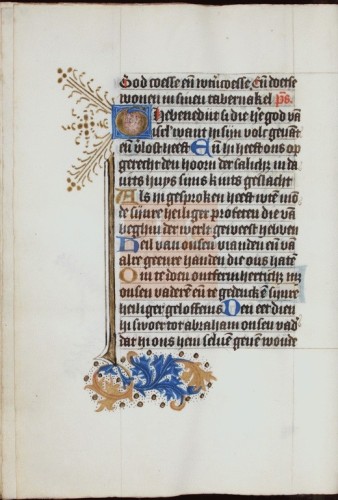 God coesse en̄ wtv̄coesse, En̄ doetse
wonen in sinen tabernakel ps̄
Ghebenedijt si die he god vā
isr̄l want hi sijn volc geuisit
en̄ v̓lost heeft En̄ hi heeft ons op
gerecht den hoorn der salich in da
uits huys sijns kints geslacht
Als hi gesproken heeft wten mō
de sijnre heiliger profeten die vā
beghin der werlt geweest hebben
Heil van onsen vianden en̄ vā
alre geenre handen die ons hatē
Om te doen ontfermherticht mz
onsen vaderen en̄ te gedenckē sijnre
heiliger geloftenis Den eet dien
hi swoer tot abraham onsen vad̓
dat hi ons hem seluen geuen woude